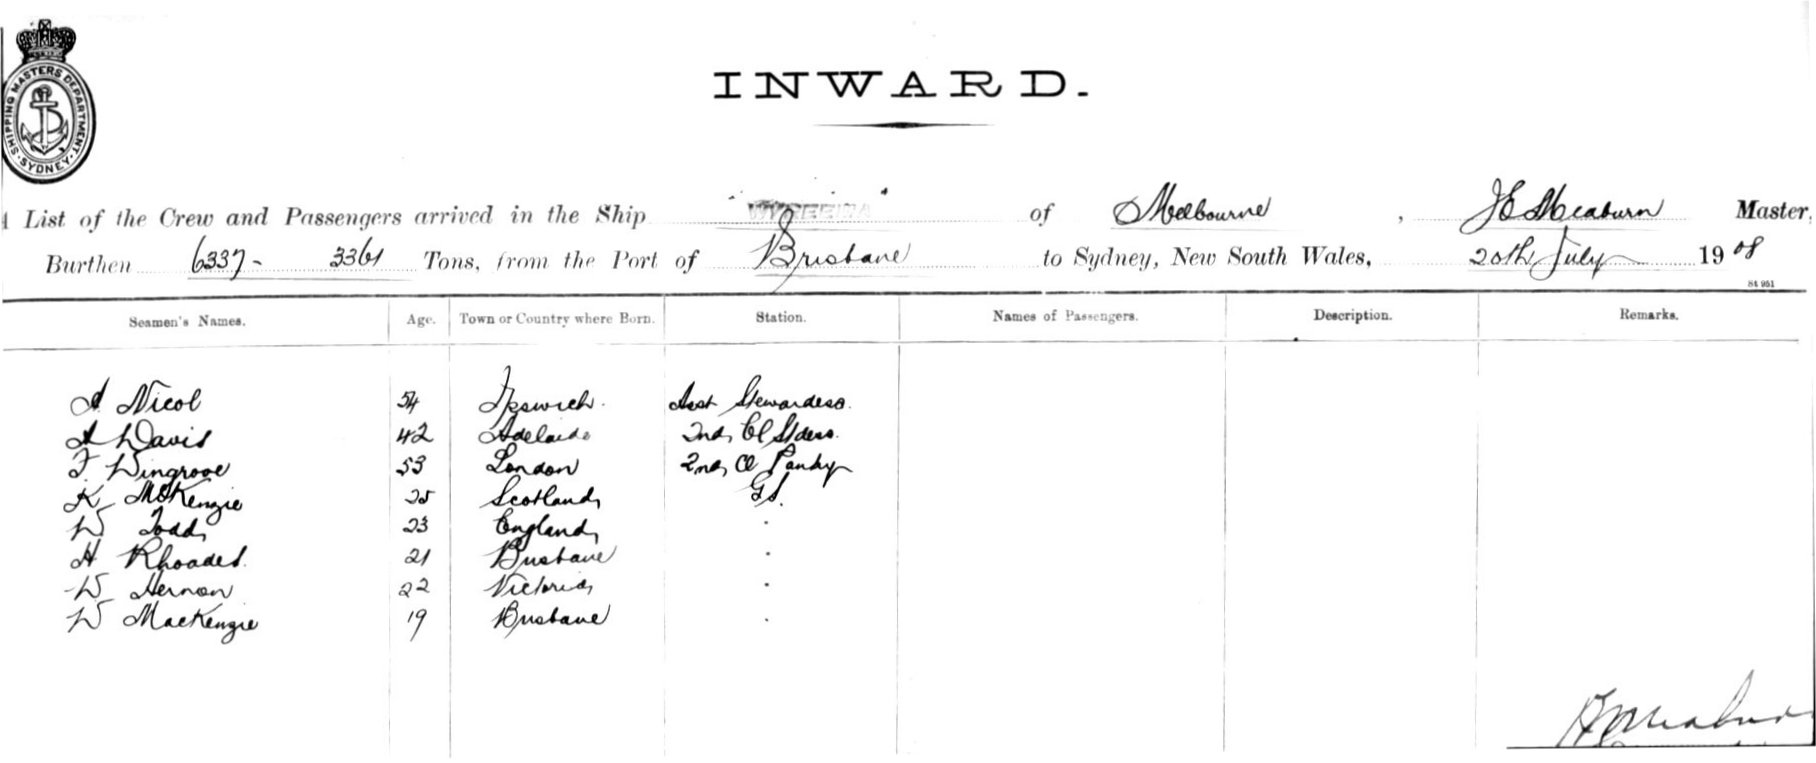 SHIPPING MASTERS DEPARTMENT · SYDNEY ·
INWARD.
List of the Crew and Passengers arrived in the Ship WYREEMA of Melbourne, J E Meaburn Master,
Burthen 6337 - 3361 Tons, from the Port of Brisbane to Sydney, New South Wales, 20th July 1908
St 951
Seamen's Names. Age. Town or Country where Born. Station. Names of Passengers. Description. Remarks.
A Nicol 54 Ipswich. Asst Stewardess.
A Davis 42 Adelaide 2nd Cl Stdess.
F. Wingrove 53 London 2nd Cl Pantry
K McKenzie 25 Scotland GS.
W Todd 23 England "
H Rhoades. 21 Brisbane "
W Hernon 22 Victoria "
W MacKenzie 19 Brisbane "